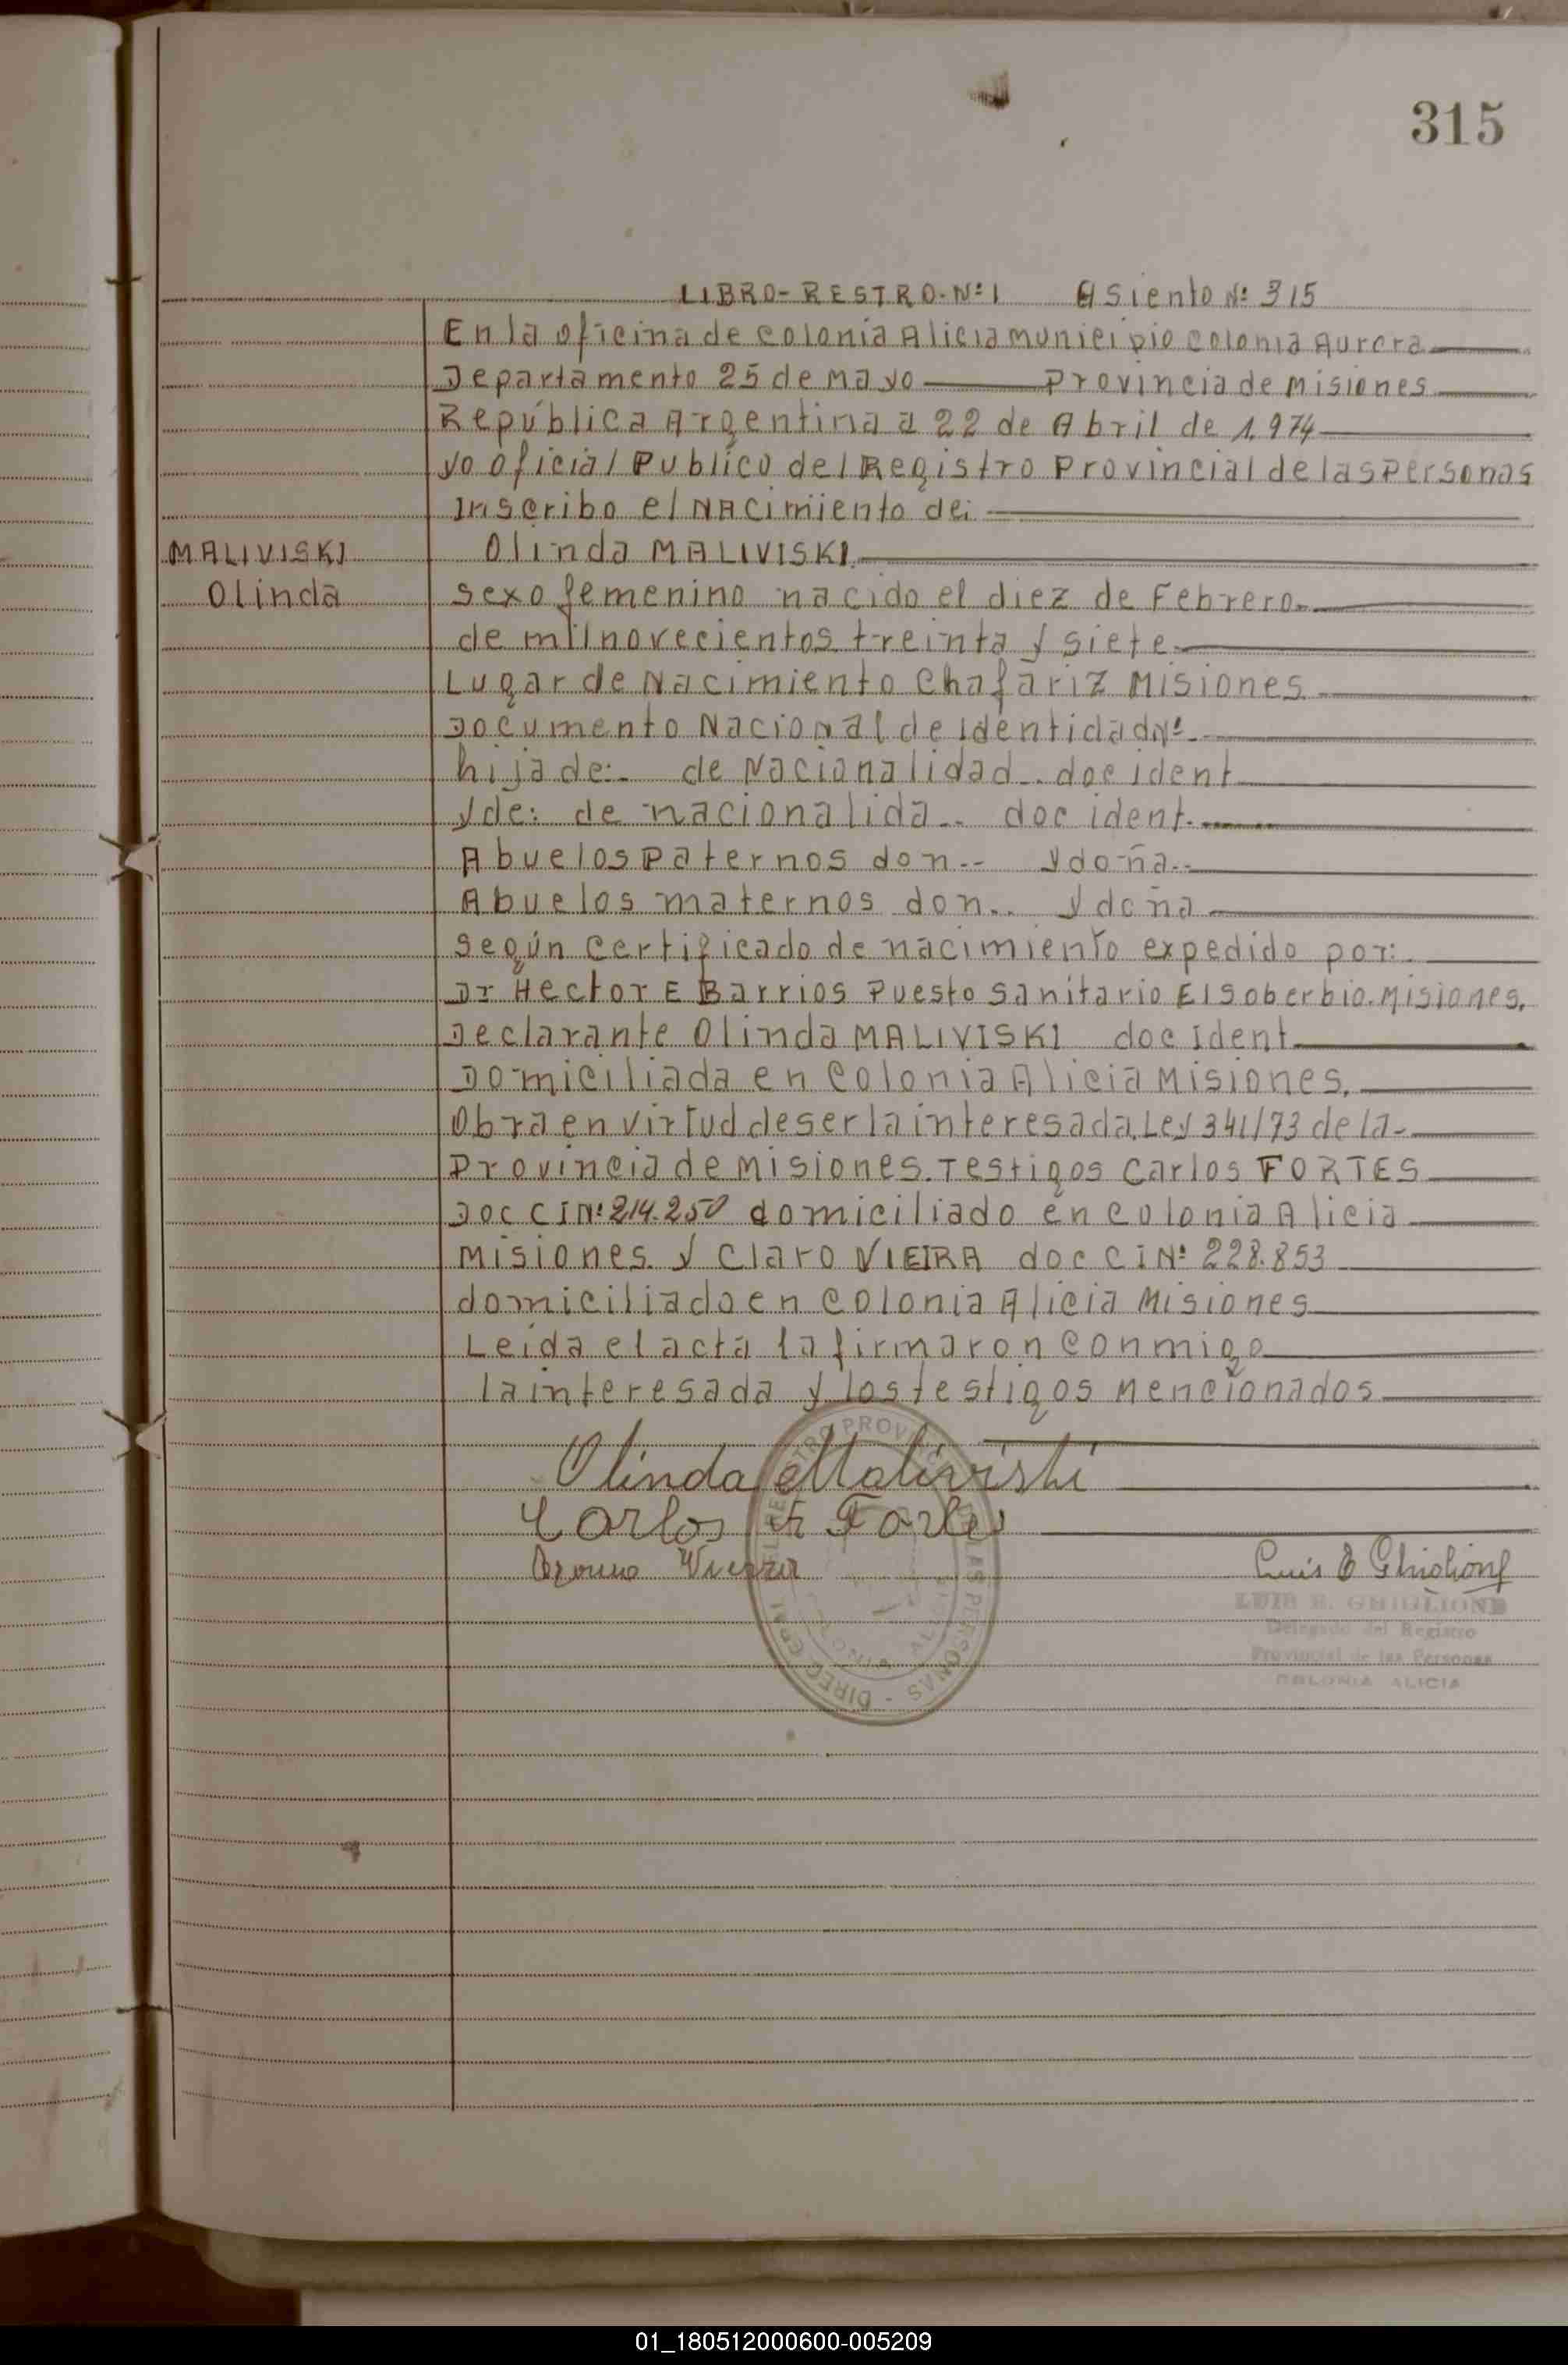 315
LIBRO-RESTRO-Nº1 Asiento Nº 315
En la oficina de colonia Alicia municipio colonia Aurora
Departamento 25 de Mayo Provincia de Misiones
República Argentina a 22 de Abril de 1.974
yo oficial Publico del Registro Provincial de las Personas
Inscribo el NAcimiento de:
MALIVISKI Olinda MALIVISKI
Olinda sexo femenino nacido el diez de Febrero
de mil novecientos treinta y siete
Lugar de Nacimiento Chafariz Misiones
Documento Nacional de Identidad Nº
hija de: de Nacionalidad.. doc ident
y de: de nacionalida.. doc ident.
Abuelos Paternos don.. y doña..
Abuelos maternos don.. y doña
según certificado de nacimiento expedido por:
Dr Hector E Barrios Puesto Sanitario El Soberbio. Misiones.
Declarante Olinda MALIVISKI doc Ident
Domiciliada en Colonia Alicia Misiones.
Obra en virtud de ser la interesada. Ley 341/73 de la
Provincia de Misiones. Testigos Carlos FORTES
Doc CI Nº 214.250 domiciliado en colonia Alicia
Misiones y Claro VIEIRA doc CI Nº 228.853
domiciliado en colonia Alicia Misiones
Leída el acta la firmaron conmigo
la interesada y los testigos Mencionados
Olinda Maliviski
Carlos Fortes
Luis E Ghiglione
LUIS E. GHIGLIONE
Delegado del Registro
Provincial de las Personas
COLONIA ALICIA
01_180512000600-005209